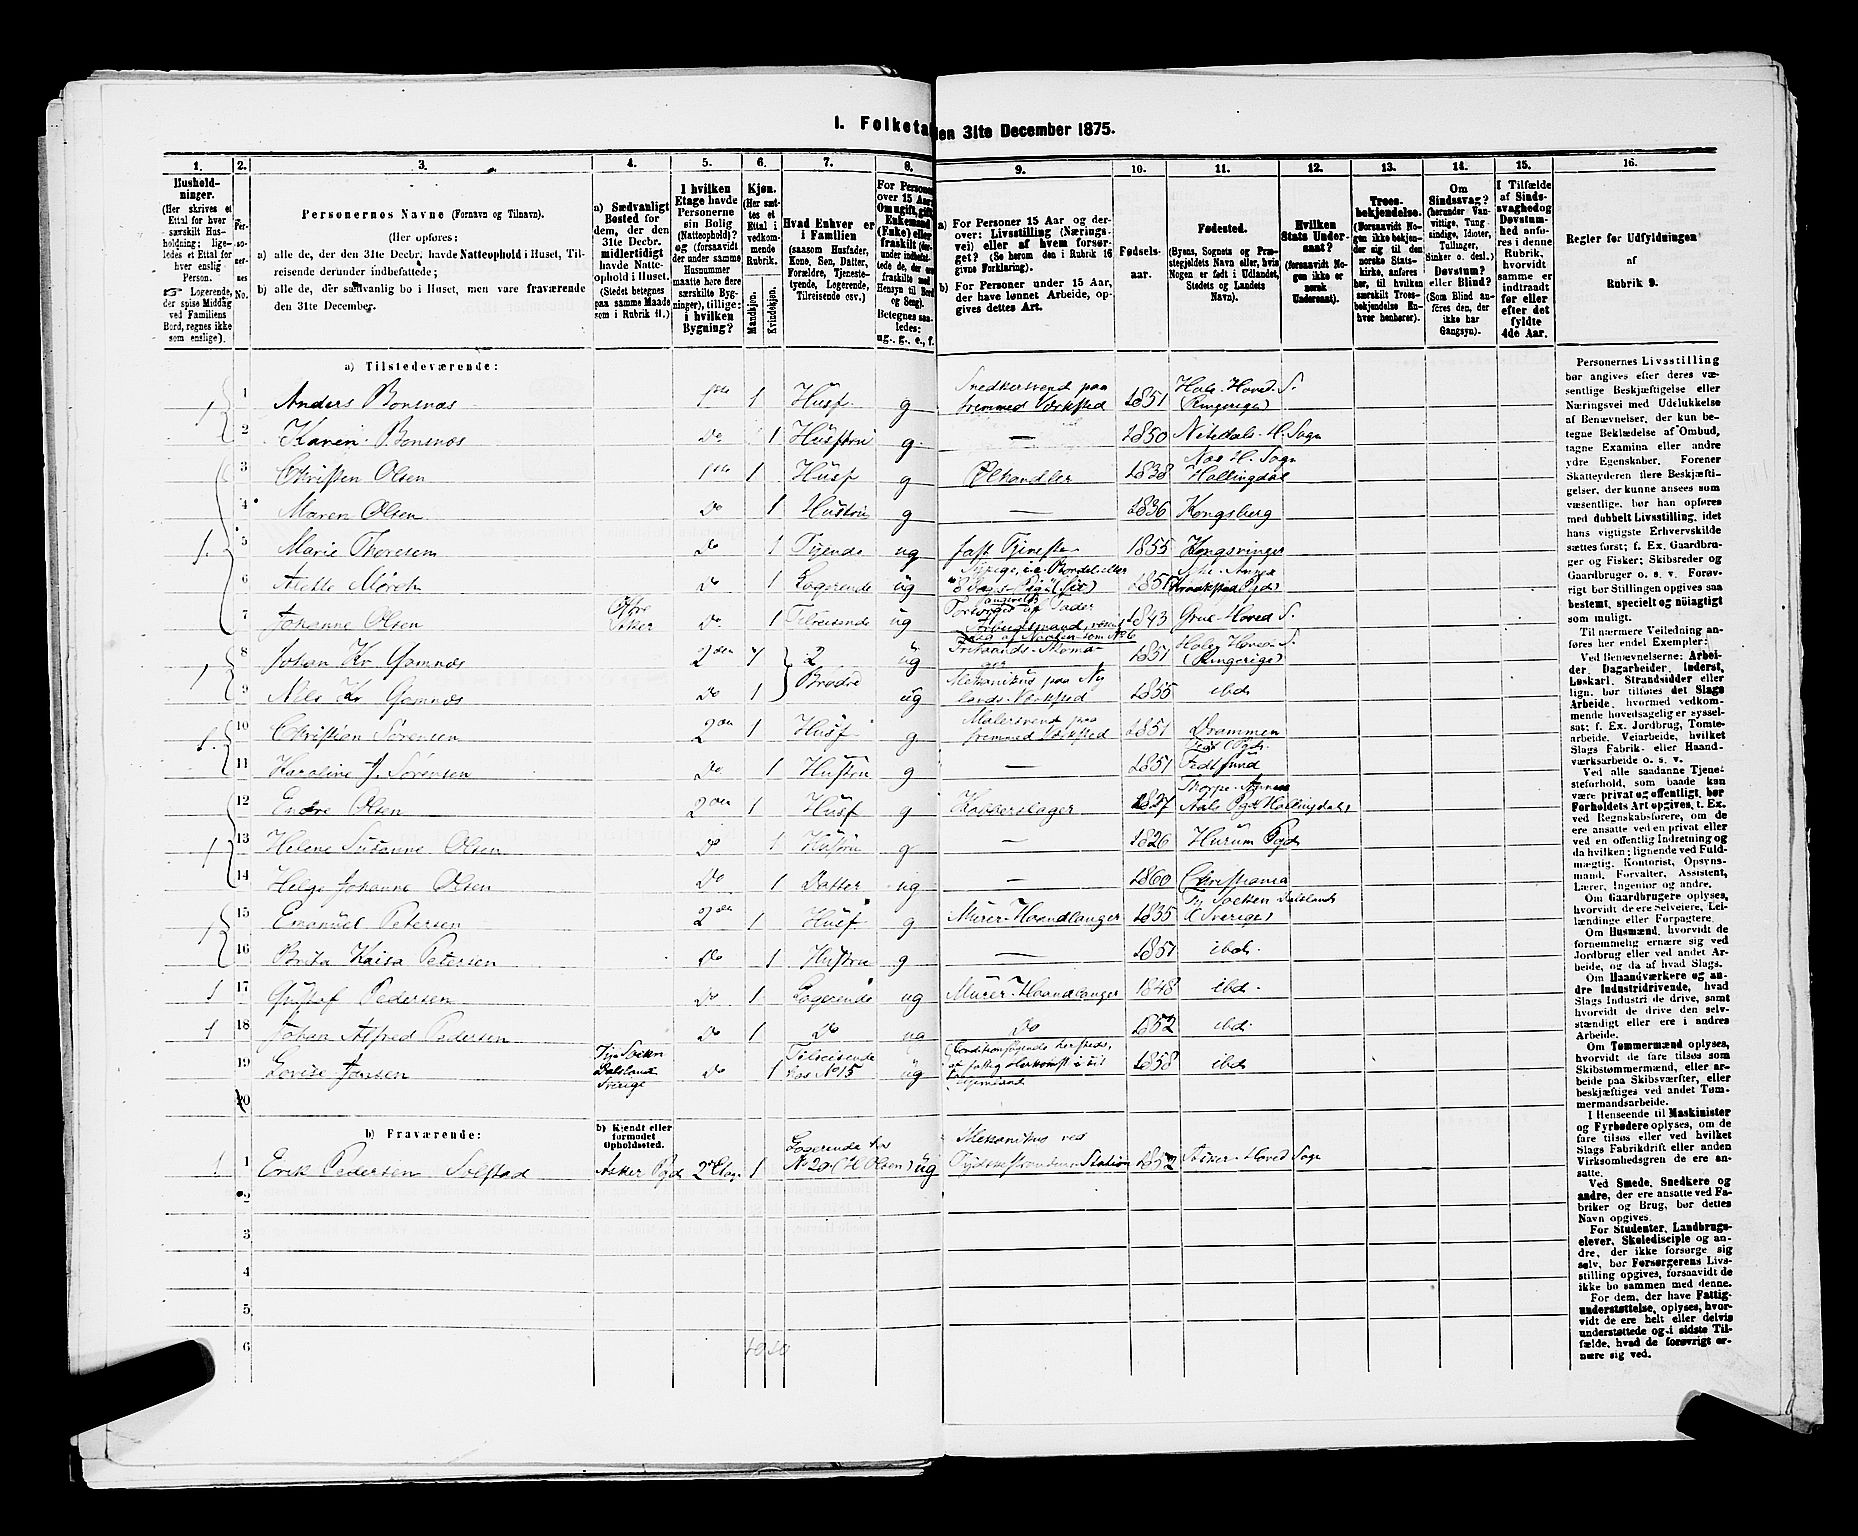 I. Folketa den 31te December 1875.
1. 2. 3. 4. 5. 6. 7. 8. 9. 10. 11. 12. 13. 14. 15. 16.
Hushold-
ninger.
(Her skrives et
Ettal for hver
særskilt Hus-
holdning; lige-
ledes et Ettal for
hver enslig
Person.
☞ Logerende,
der spise Middag
ved Familiens
Bord, regnes ikke
som enslige).
Per-
so-
ner-
nes
No.
Personernes Navne (Fornavn og Tilnavn).
(Her opføres:
a) alle de, der den 31te Decbr. havde Natteophold i Huset, Til-
reisende derunder indbefattede;
b) alle de, der sædvanlig bo i Huset, men vare fraværende
den 31te December.
a) Sædvanligt
Bosted for
dem, der den
31te Decbr.
midlertidigt
havde Natte-
ophold i Huset.
(Stedet betegnes
paa samme Maade
som i Rubrik 11.)
I hvilken
Etage havde
Personerne
sin Bolig
(Natteophold)?
og (forsaavidt
der under samme
Husnummer
maatte høre flere
særskilte Byg-
ninger), tillige:
i hvilken
Bygning?
Kjøn.
(Her sæt-
tes et
Ettal i
vedkom-
mende
Rubrik.
Mandkjøn.
Kvindekjøn.
Hvad Enhver er
i Familien
(saasom Husfader,
Kone, Søn, Datter,
Forældre, Tjeneste-
tyende, Logerende,
Tilreisende osv.)
For Personer
over 15 Aar:
Om ugift, gift,
Enkemand
(Enke) eller
fraskilt
Betegnes saa-
ledes:
ug., g., e., f.
a) For Personer 15 Aar og der-
over: Livsstilling (Nærings-
vei) eller af hvem forsør-
get? (Se herom den i Rubrik 16
givne Forklaring).
b) For Personer under 15 Aar,
der have lønnet Arbeide, op-
gives dettes Art.
Fødsels-
aar.
Fødested.
(Byens, Sognets og Præ-
stegjeldets Navn eller, hvis
Nogen er født i Udlandet,
Stedets og Landets
Navn).
Hvilken
Stats Under-
saat?
(forsaavidt No-
gen ikke er
norsk
Undersaat).
Troes-
bekjendelse.
(Forsaavidt No-
gen ikke bekjen-
der sig til den
norske Stats-
kirke, anføres
her, til hvilken
særskilt Troes-
bekjendelse En-
hver henhører).
Om
Sindssvag?
(herunder Van-
vittige, Tung-
sindige, Idioter,
Tullinger,
Sinker o. desl.)
Døvstum?
eller Blind?
(Som Blind an-
føres den, der
ikke har
Gangsyn).
I Tilfælde
af Sinds-
svaghed og
Døvstum-
hed anfø-
res i denne
Rubrik,
hvorvidt
samme er
indtraadt
før eller
efter det
fyldte
4de Aar.
Regler for Udfyldningen
af
Rubrik 9.
a) Tilstedeværende:
1 1 Anders Bonsnæs 1ste 1 Husf. g Snedkersvend paa fremmed Værksted 1851 Hole Hoved S. (Ringerige)
2 Karen Bonsnæs Do 1 Hustru g — 1850 Nitedals H. Sogn
3 Christen Olsen 1ste 1 Husf g Ølhandler 1838 Næs H. Sogn Hallingdal
4 Maren Olsen Do 1 Hustru g — 1836 Kongsberg
1 5 Marie Thoresen Do 1 Tjende ug fast Tjeneste 1855 Kongsvinger
6 Do 1 Logerende ug Sypige, 1851
7 Johanne Olsen Do 1 Tilreisende ug Forsørges af Fader Arbeidsmand, 1843 Grue Hoved S.
1 8 Johan Kr Gamnæs 2den 1 2 Brødre ug 1851 Hole Hoved S. (Ringerige)
9 Nils Kr Gamnæs Do 1 ug Mekanikus paa Nylands Værksted 1855 ibd
1 10 Christian Sørensen 2den 1 Husf g Malersvend paa fremmed Værksted 1851 Drammen
11 Karoline J. Sørensen Do 1 Hustru g — 1851
12 Endre Olsen 2den 1 Husf g Kobberslager 1827 Thorpe Annex Aals Pgd Hallingdal
1 13 Helene Susanne Olsen Do 1 Hustru g — 1826 Hurum Pgd
14 Helga Johanne Olsen Do 1 Datter ug 1860 Christiania
1 15 Emanuel Petersen 2den 1 Husf g Murer-Haandlanger 1835 Dalsland (Sverige)
16 Brita Kaisa Petersen Do 1 Hustru g — 1851 ibd.
1 17 Gustaf Pedersen Do 1 Logerende ug Murer-Haandlanger 1848 ibd.
1 18 Johan Alfred Pedersen Do 1 Do ug Do 1852 ibd.
19 Lovise Jansen Dalsland Sverige Do 1 Tilreisende hos No 15 ug 1858 ibd
20
b) Fraværende:
b) Kjendt eller
formodet
Opholdssted.
1 1 Erik Pedersen Solstad Asker Pgd 2 Etag 1 Logerende hos No 20 (H Olsen) ug Mekanikus ved Station 1852 Asker Hoved Sogn
2
3
4
5
6
Personernes Livsstilling
bør angives efter deres væ-
sentlige Beskjæftigelse eller
Næringsvei med Udelukkelse
af Benævnelser, der kun be-
tegne Beklædelse af Ombud,
tagne Examina eller andre
ydre Egenskaber. Forener
Skatteyderen flere Beskjæfti-
gelser, der kunne ansees som
væsentlige, bør han opføres
med dobbelt Livsstilling, idet
hans vigtigste Erhvervskilde
sættes først; f. Ex. Gaardbru-
ger og Fisker; Skibsreder og
Gaardbruger o. s. v. Forøv-
rigt bør Stillingen opgives saa
bestemt, specielt og nøiagtigt
som muligt.
Til nærmere Veiledning an-
føres her endel Exempler:
Ved Benævnelserne: Arbei-
der, Dagarbeider, Inderst,
Løskarl, Strandsidder eller
lign. bør tilføies det Slags
Arbeide, hvormed vedkom-
mende hovedsagelig er syssel-
sat; f. Ex. Jordbrug, Tomte-
arbeide, Veiarbeide, hvilket
Slags Fabrik- eller Haand-
værksarbeide o. s. v.
Ved alle saadanne Tjene-
steforhold, som baade kan
være privat og offentligt, bør
Forholdets Art opgives, t. Ex.
ved Regnskabsførere, om de
ere ansatte ved en privat eller
en offentlig Indretning og
da hvilken; lignende ved Fuld-
mægtig, Kontorist, Opsyns-
mand, Forvalter, Assistent,
Lærer, Ingeniør og andre.
Om Gaardbrugere oplyses,
hvorvidt de ere Selveiere, Lei-
lændinge eller Forpagtere.
Om Husmænd, hvorvidt de
fornemmelig ernære sig ved
Jordbrug eller ved andet Ar-
beide, og da af hvad Slags.
Om Haandværkere og an-
dre Industridrivende, hvad
Slags Industri de drive, samt
hvorvidt de drive den selv-
stændigt eller ere i andres
Arbeide.
Om Tømmermænd oplyses,
hvorvidt de fare tilsøs som
Skibstømmermænd, eller ar-
beide paa Skibsværfter, eller
beskjæftiges ved andet Tøm-
mermandsarbeide.
I Henseende til Maskinister
og Fyrbødere oplyses, om de
fare tilsøs eller ved hvilket
Slags Fabrikdrift eller anden
Virksomhedsgren de ere an-
satte.
Ved Smede, Snedkere og
andre, der ere ansatte ved Fa-
briker og Brug, bør dettes
Navn opgives.
For Studenter, Landbrugs-
elever, Skoledisciple og an-
dre, der ikke forsørge sig
selv, bør Forsørgerens Livs-
stilling opgives, forsaavidt de
ikke bo sammen med denne.
For dem, der have Fattig-
understøttelse, oplyses, hvor-
vidt de ere helt eller delvis
understøttede og i sidste Til-
fælde, hvad de forøvrigt er-
nære sig ved.